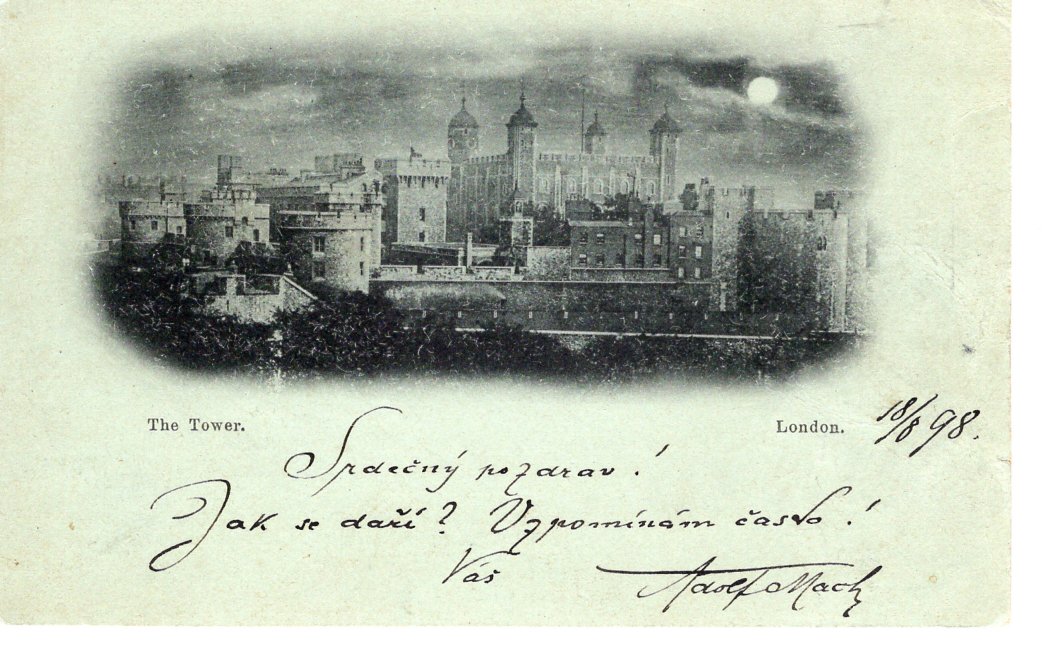 The Tower.
London.
18/8 98.
Srdečný pozdrav!
Jak se daří? Vzpomínám často!
Váš
Adolf Mach